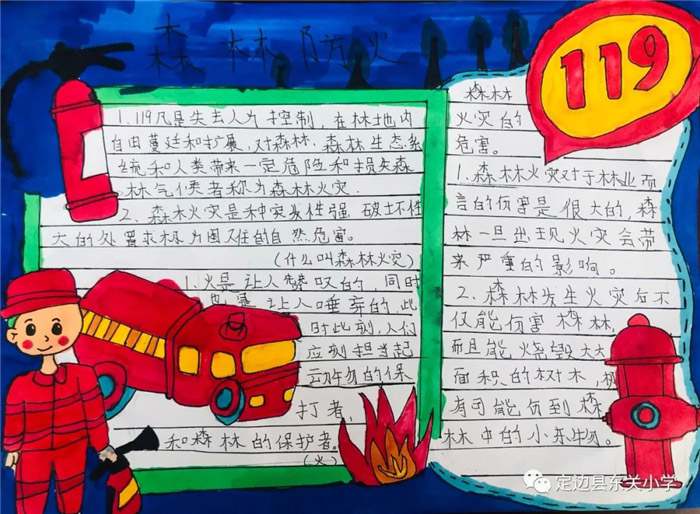 森林防火
119
1.119凡是失去人为控制,在林地内
自由蔓延和扩展,对森林、森林生态系
统和人类带来一定危险和损失森
林气候者称为森林火灾.
2.森林火灾是种突发性强、破坏性
大的处置求极为困难的自然危害。
(什么叫森林火灾)
1.火是让人赞叹的,同时
让人唾弃的,此
时此刻,人们
应刻担当起
动物的保
护者,
和森林的保护者。
(火)
森林
火灾的
危害。
1.森林火灾对于林业而
言的伤害是很大的,森
林一旦出现火灾会带
来严重的影响。
2.森林发生火灾后不
仅能伤害森林,
而且能烧毁大
面积的树木,
有可能伤到森
林中的小动物。
定边县东关小学